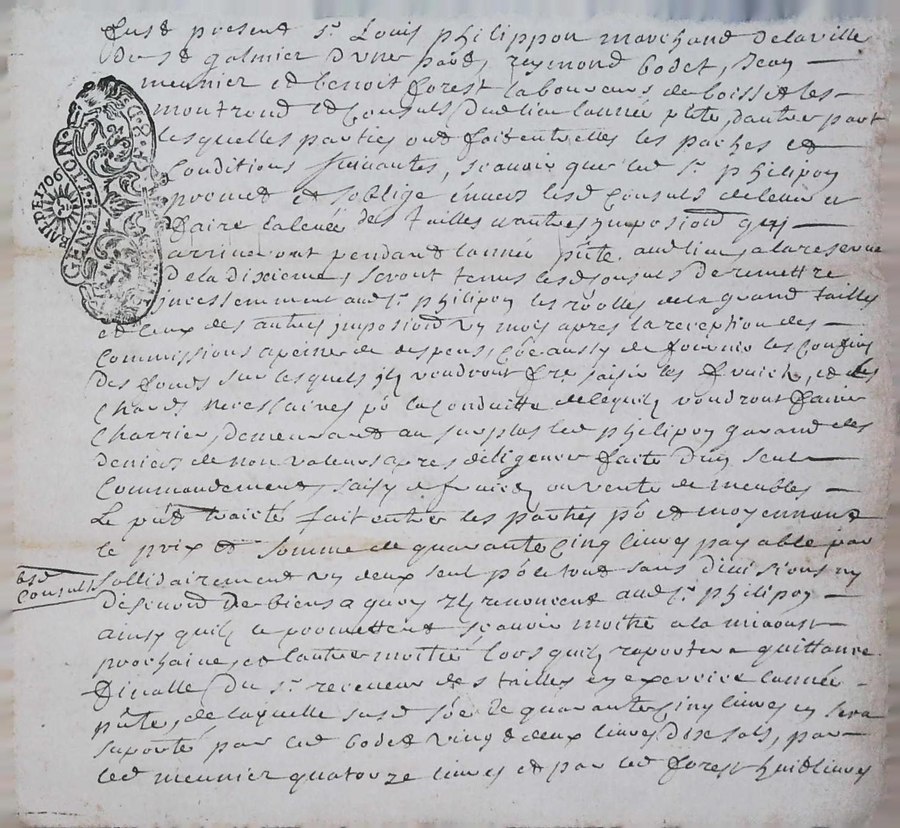 fust present sr. Louis philippon marchand de la ville
de st galmier dune part, reymond bodet, Jean
meunier et benoit forest laboureurs de boisset les
montrond et Consuls dud lieu lannée pnte, dautre part
lesquelles parties ont fait entrelles les paches et
Conditions suivantes, scavoir que led sr. philipon
promet et soblige envers lesd Consuls de lever et
faire la levée des tailles et autres imposions quy
arriveront pendant lannée pnte. aud lieu, a la reserve
de la dixieme, seront tenus lesd consuls de remettre
incessemment aud sr. philipon les roolles de la grand tailles
et ceux des autres imposions un mois apres la reception des
Commissions a peine de despens, Coe aussy de fournir les Confins
des fonds sur lesquels ils voudront fre. saisir les fruicts, et les
Chards necessaires pr la Conduitte de ce quils voudront faire
Charrier, demeurant au surplus led philipon garand des
deniers de non valeurs apres diligence faite dun seul
Commandement, saisy de fruicts ou vente de meubles
Le pnt traicté fait entre les parties pr et moyennant
le prix et somme de quarante cinq livres payable par
lesd
Consuls
sollidairement un deux seul pr le tout sans divisions ny
de biens a quoy ils renoncent aud sr. philipon
ainsy quils le promettent scavoir moitié a la miaoust
prochaine, et lautre moitié lors quil raportera quittance
finalle du sr. receveur des tailles en exercice lannée
pnte, de laquelle susd soe de quarante cinq livres en sera
suporté par led bodet vingt deux livres dix sols, par
led meunier quatorze livres et par led forest huid livres
GEN. DE. LION.
BAIL DE 1706